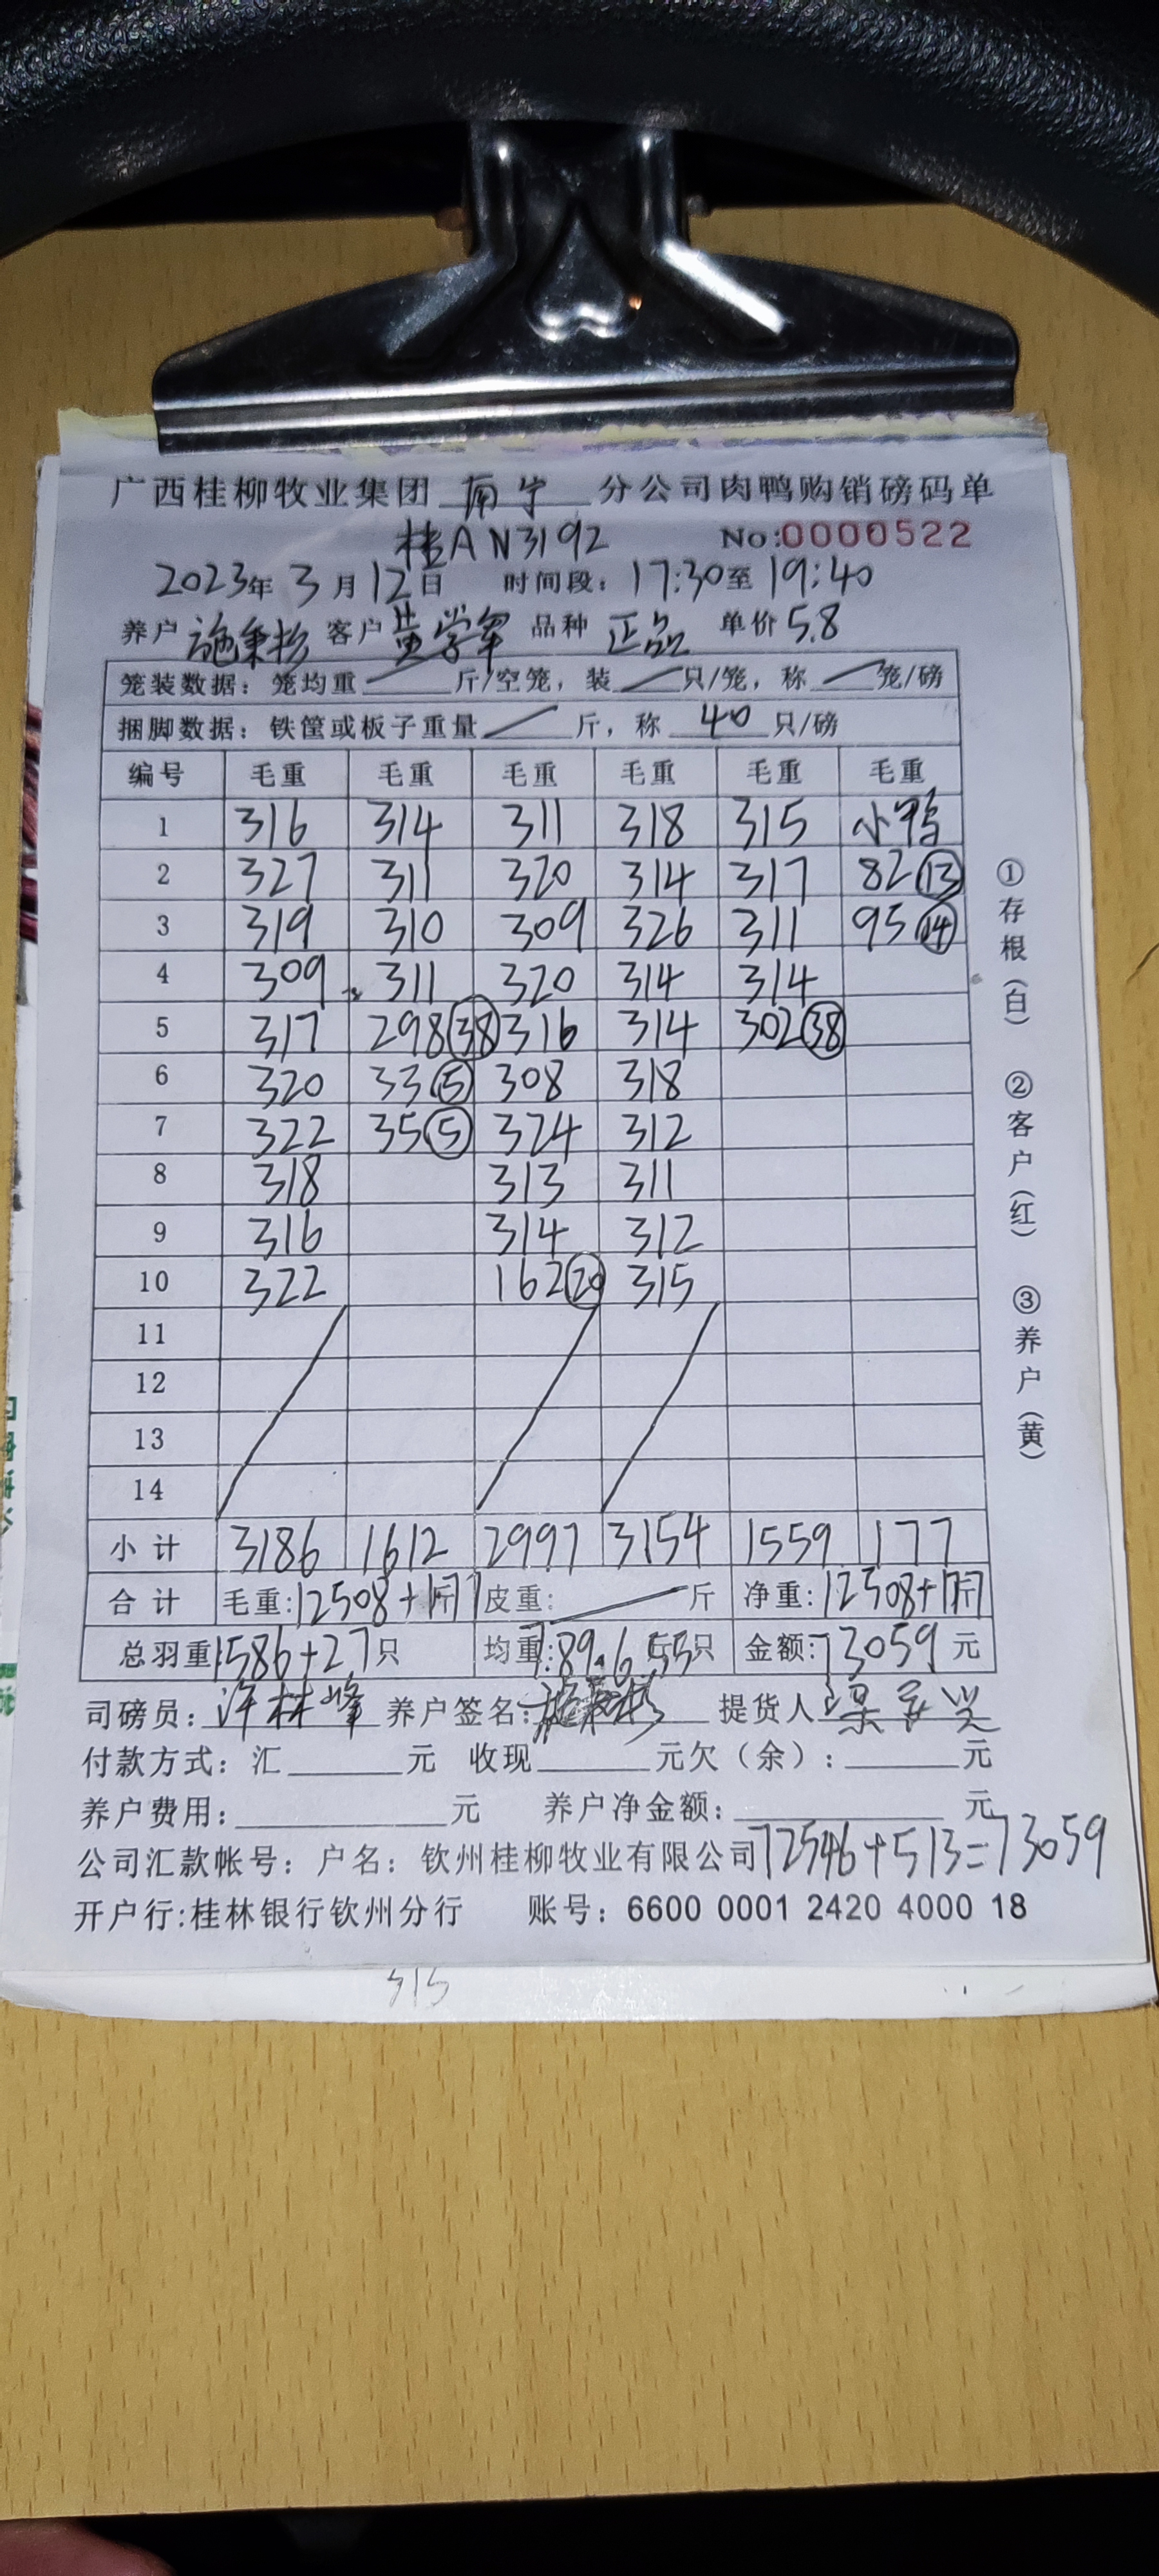 广西桂柳牧业集团 南宁 分公司肉鸭购销磅码单
桂AN3192 No:0000522
2023年 3月12日 时间段：17:30至19:40
养户 施秉杉 客户 黄学军 品种 正品 单价 5.8
笼装数据：笼均重 斤/空笼，装 只/笼，称 笼/磅
捆脚数据：铁筐或板子重量 斤，称 40 只/磅
编号 毛重 毛重 毛重 毛重 毛重 毛重
1 316 314 311 318 315 小鸭
2 327 311 320 314 317 82 13
3 319 310 309 326 311 95 14
4 309 311 320 314 314
5 317 298 38 316 314 302 38
6 320 33 5 308 318
7 322 35 5 324 312
8 318 313 311
9 316 314 312
10 322 162 20 315
11
12
13
14
小计 3186 1612 2997 3154 1559 177
合计 毛重:12508+177斤 皮重: 斤 净重:12508+177斤
总羽重:1586+27只 均重:7.89 6.55斤只 金额:73059元
司磅员：许林峰 养户签名：施秉杉 提货人
付款方式：汇 元 收现 元欠（余）： 元
养户费用： 元 养户净金额： 元
72546+513=73059
公司汇款帐号：户名：钦州桂柳牧业有限公司
开户行:桂林银行钦州分行 账号：6600 0001 2420 4000 18
①存根（白） ②客户（红） ③养户（黄）
315